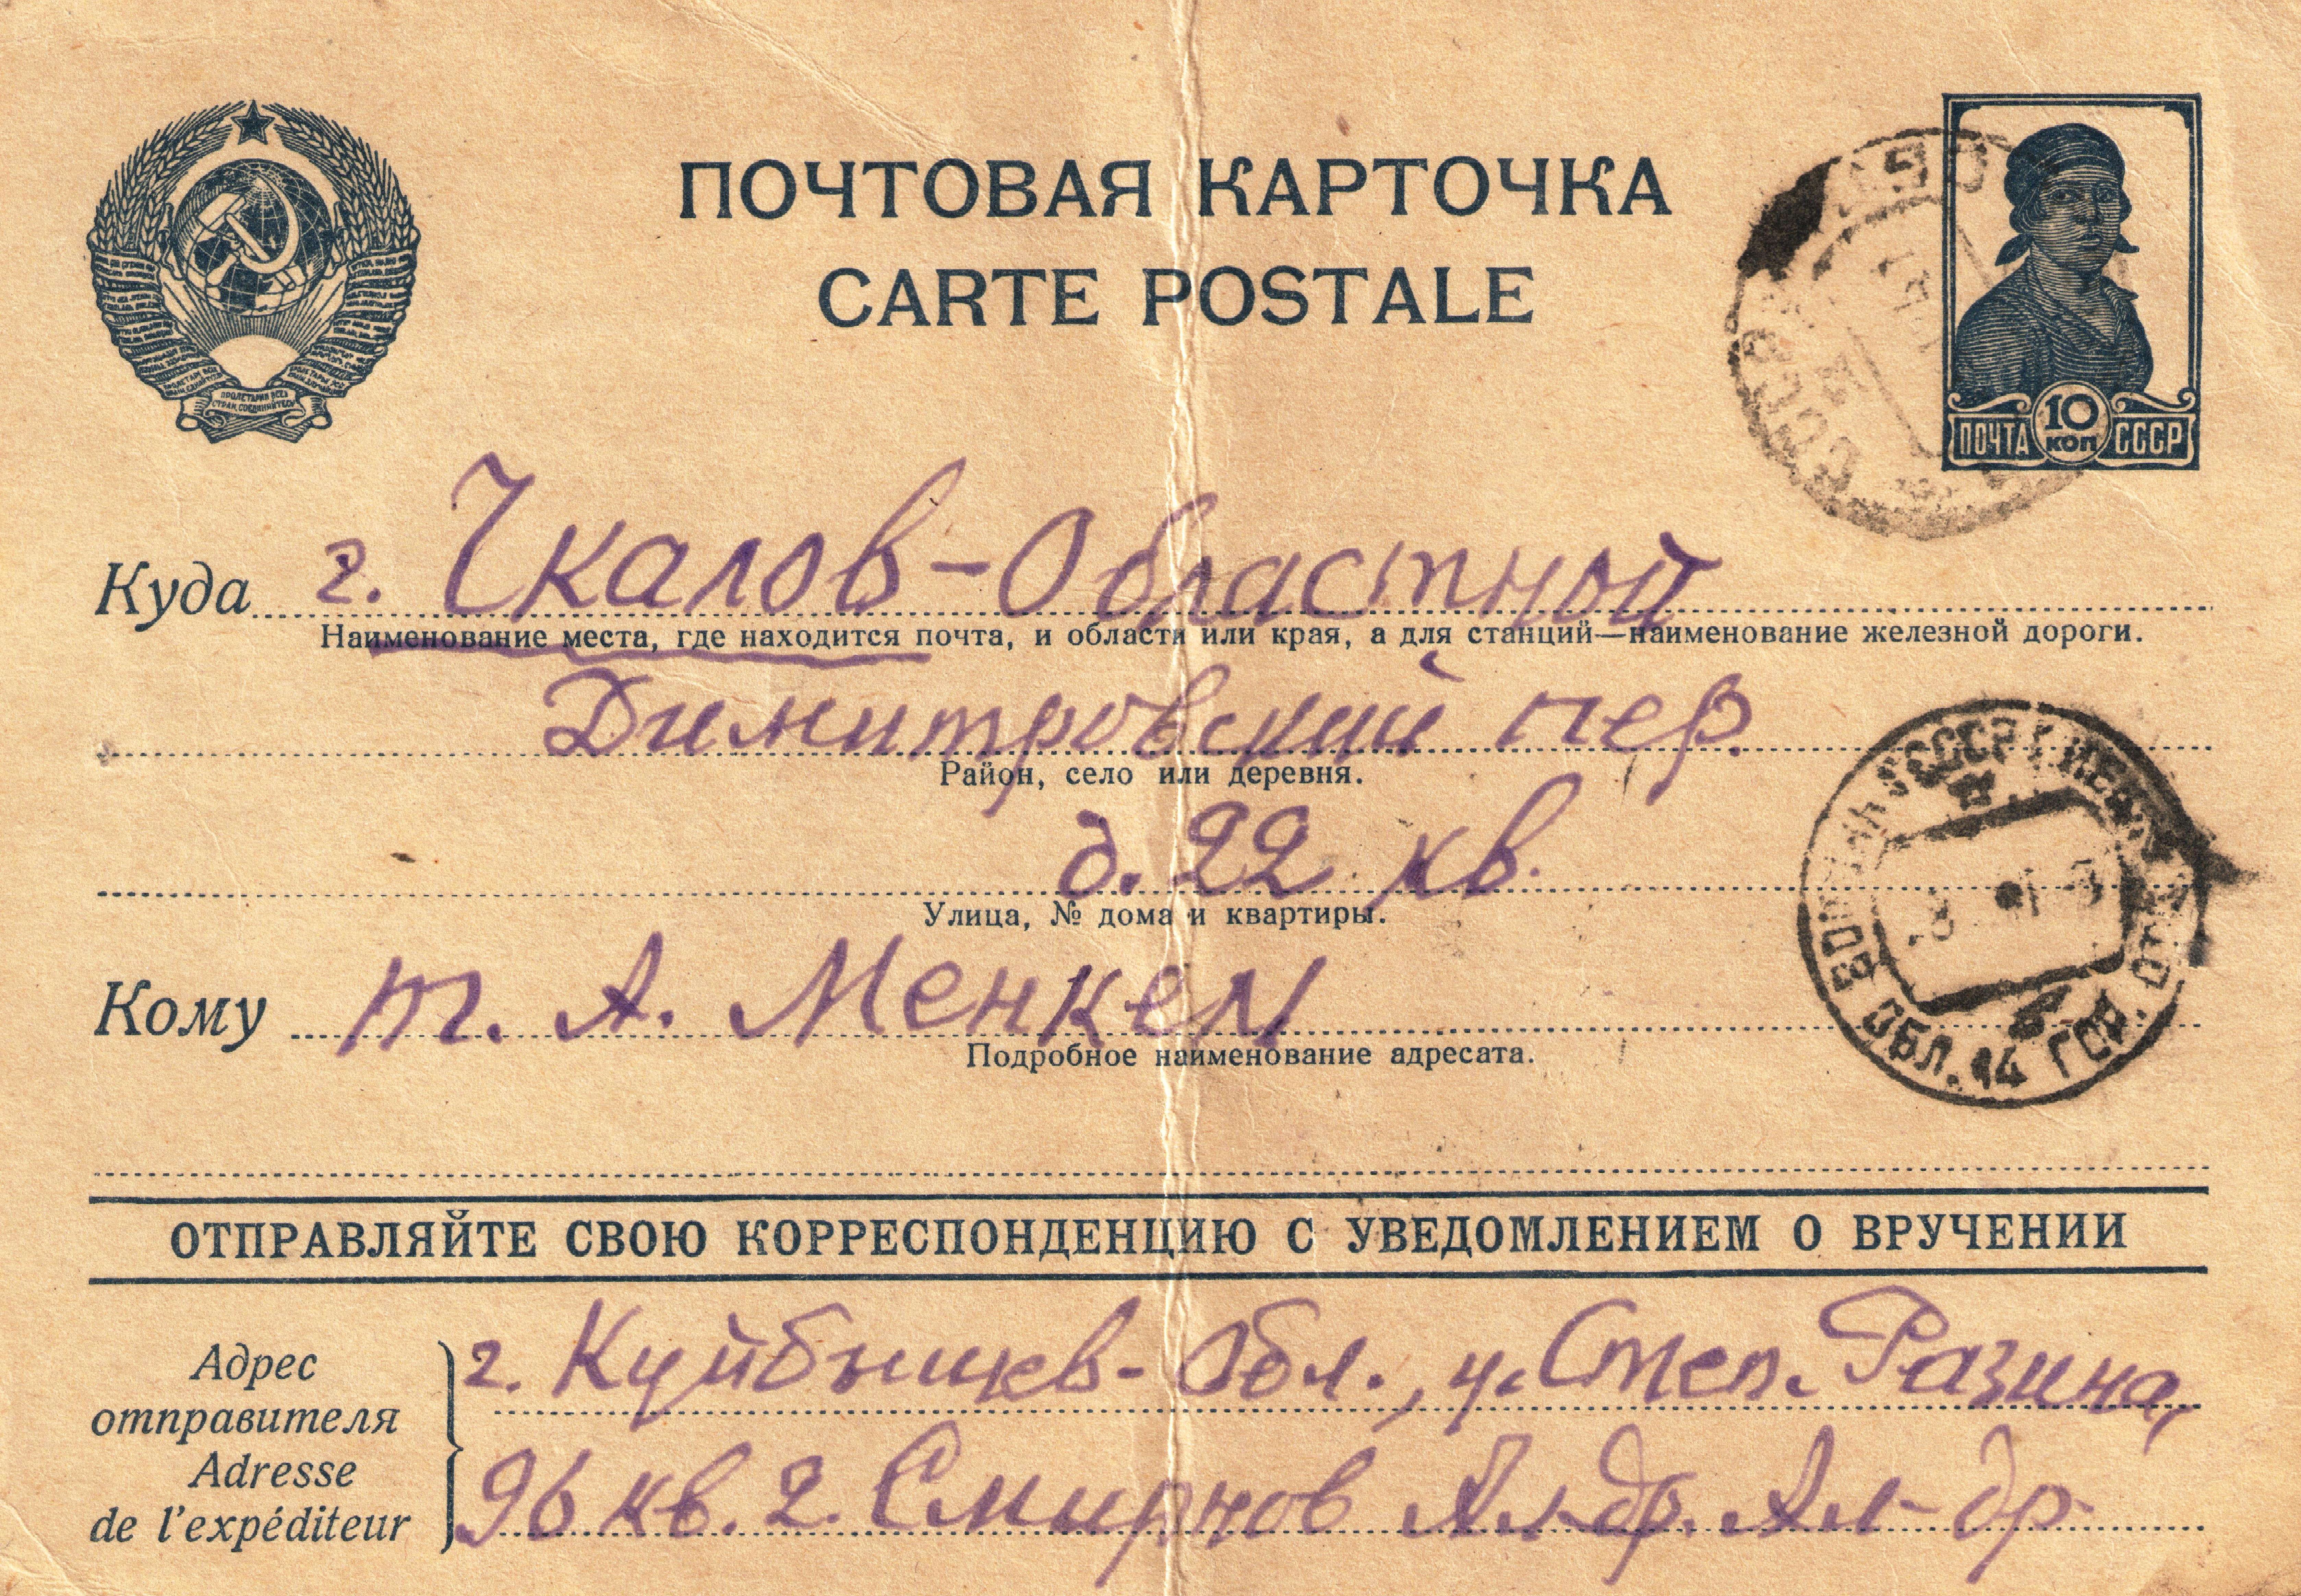 ПОЧТОВАЯ КАРТОЧКА
CARTE POSTALE
ПРОЛЕТАРИИ ВСЕХ
СТРАН, СОЕДИНЯЙТЕСЬ
10
КОП
ПОЧТА СССР
Куда г. Чкалов-Областной
Наименование места, где находится почта, и области или края, а для станций—наименование железной дороги.
Димитровский пер.
Район, село или деревня.
д. 22 кв.
Улица, № дома и квартиры.
Кому т. А. Менкем
Подробное наименование адресата.
ОБЛ. 14 ГОР. ОТД
ОТПРАВЛЯЙТЕ СВОЮ КОРРЕСПОНДЕНЦИЮ С УВЕДОМЛЕНИЕМ О ВРУЧЕНИИ
Адрес
отправителя
Adresse
de l'expéditeur
г. Куйбышев-Обл., у. Степ. Разина,
96 кв. 2. Смирнов Ал-др. Ал-др